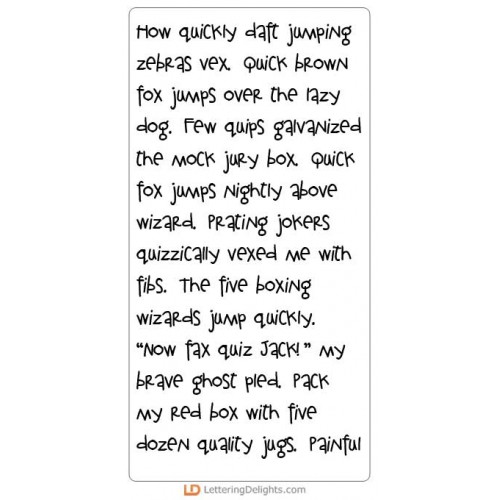 How quickly daft jumping
zebras vex. Quick brown
fox jumps over the lazy
dog. Few quips galvanized
the mock jury box. Quick
fox jumps nightly above
wizard. Prating jokers
quizzically vexed me with
fibs. The five boxing
wizards jump quickly.
“Now fax quiz Jack!” my
brave ghost pled. Pack
my red box with five
dozen quality jugs. Painful
LD LetteringDelights.com